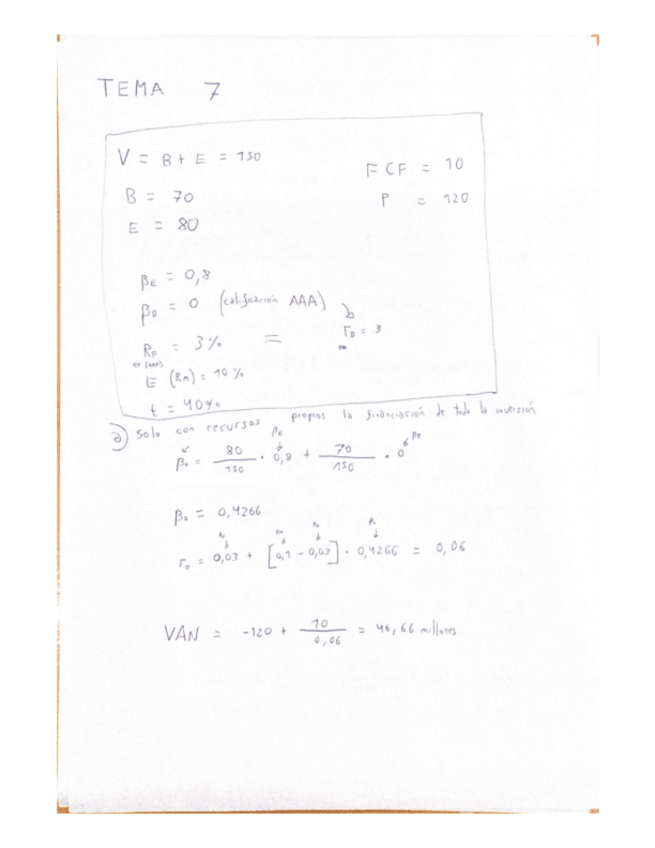 TEMA 7
V = B + E = 150
FCF = 10
B = 70
P = 120
E = 80
βE = 0,8
βB = 0 (calificación AAA)
rB = 3
RF = 3% =
E (RM) = 10%
t = 40%
a) Solo con recursos propios la financiación de toda la inversión
βE
βo = 80/150 · 0,8 + 70/150 · 0
βo = 0,4266
ro = 0,03 + [0,1 - 0,03] · 0,4266 = 0,06
VAN = -120 + 10/0,06 = 46,66 millones